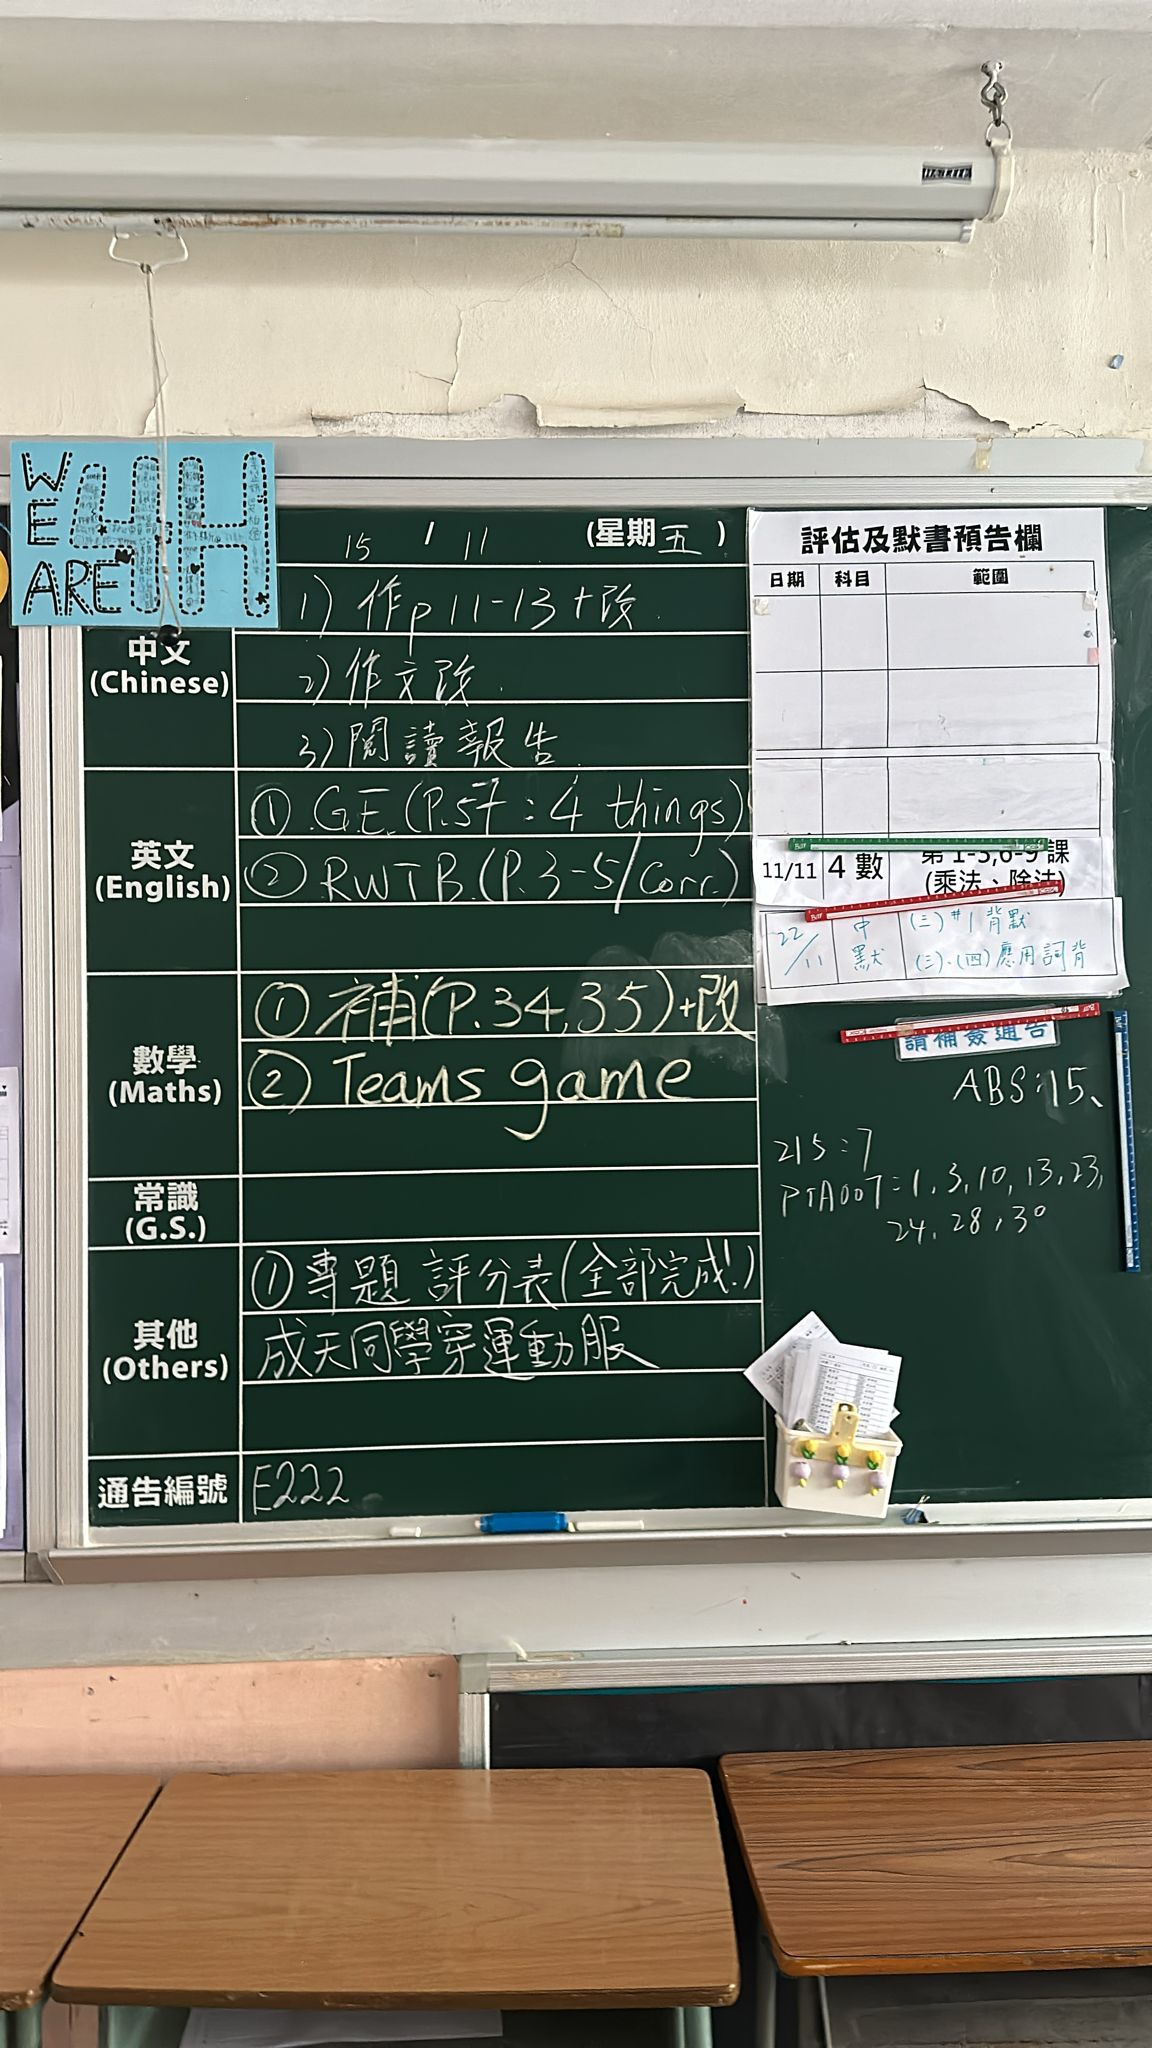 WE ARE 4H
15 / 11 (星期五)
中文
(Chinese)
1) 作p 11-13 + 改
2) 作文改
3) 閱讀報告
英文
(English)
① G.E. (P.57 : 4 things)
② RWTB. (P.3-5/Corr.)
數學
(Maths)
① 補(P.34,35)+改
② Teams game
常識
(G.S.)
其他
(Others)
① 專題 評分表(全部完成!)
成天同學穿運動服
通告編號 E222
評估及默書預告欄
日期 科目 範圍
11/11 4 數 第 1-3,6-9 課
(乘法、除法)
22/11 中默 (三)#1背默
(三)、(四)應用詞背
請補簽通告
ABS:15、
215:7
PTA007:1,3,10,13,23,
24,28,30